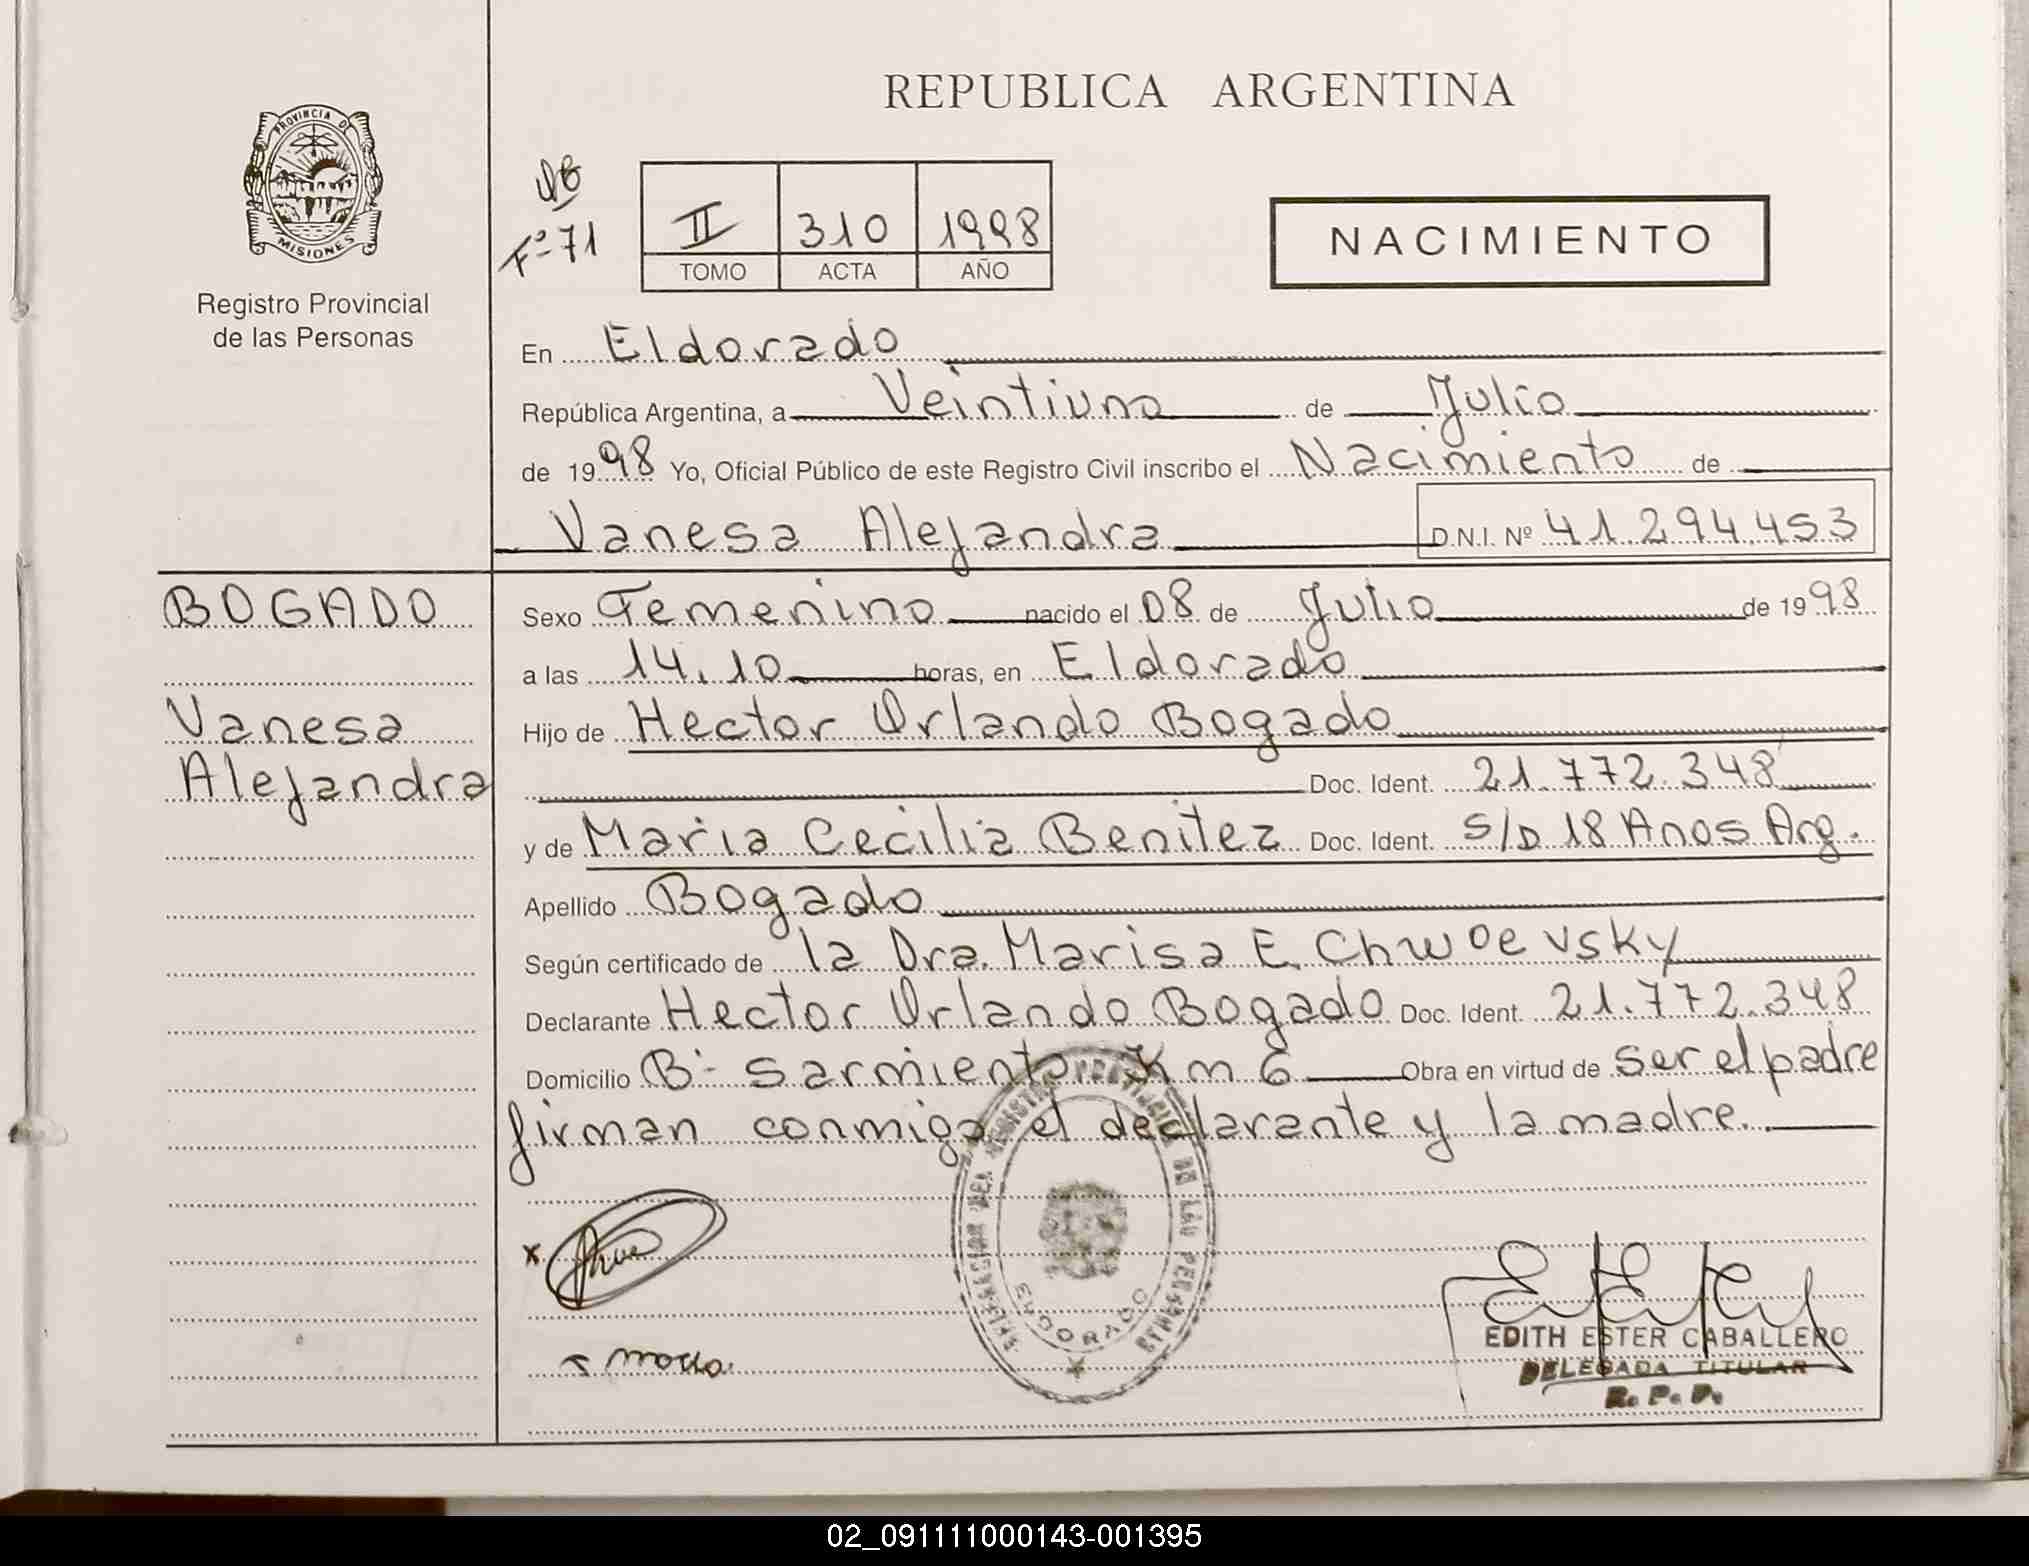 REPUBLICA ARGENTINA
PROVINCIA DE
MISIONES
Registro Provincial
de las Personas
Fº 71
II 310 1998
TOMO ACTA AÑO
NACIMIENTO
En Eldorado
República Argentina, a Veintiuno de Julio
de 1998 Yo, Oficial Público de este Registro Civil inscribo el Nacimiento de
Vanesa Alejandra D.N.I. Nº 41.294.453
BOGADO
Vanesa
Alejandra
Sexo Femenino nacido el 08 de Julio de 1998
a las 14.10 horas, en Eldorado
Hijo de Hector Orlando Bogado
Doc. Ident. 21.772.348
y de Maria Cecilia Benitez Doc. Ident. S/D 18 Anos Arg.
Apellido Bogado
Según certificado de la Dra. Marisa E. Chwoevsky
Declarante Hector Orlando Bogado Doc. Ident. 21.772.348
Domicilio Bº Sarmiento Km 6 Obra en virtud de ser el padre
firman conmigo el declarante y la madre.
DELEGACION DEL REGISTRO PROVINCIAL DE LAS PERSONAS
ELDORADO
EDITH ESTER CABALLERO
DELEGADA TITULAR
R. P. P.
02_091111000143-001395